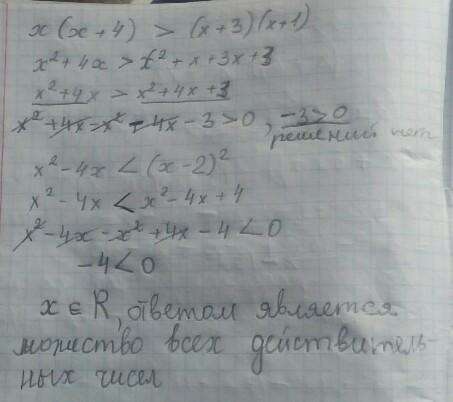 x(x+4) > (x+3)(x+1)
x²+4x > x²+x+3x+3
x²+4x > x²+4x+3
x²+4x-x²-4x-3>0, -3>0
решений нет
x²-4x < (x-2)²
x²-4x < x²-4x+4
x²-4x-x²+4x-4<0
-4<0
x∈R, ответом является
можество всех действитель-
ных чисел